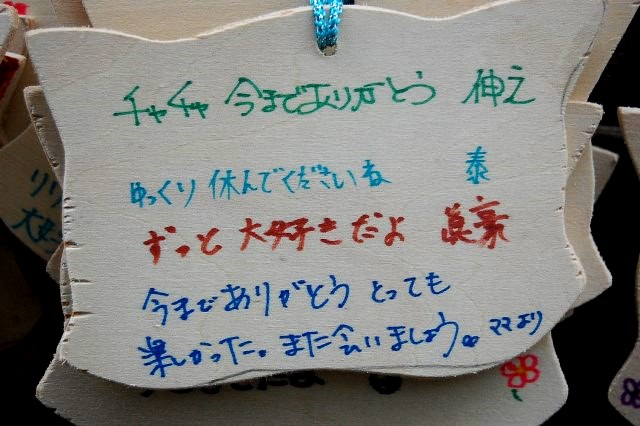 チャチャ 今までありがとう 伸え
ゆっくり 休んでくださいね 泰
ずっと 大好きだよ 眞豪
今までありがとう とっても
楽しかった。また会いましょう。ママより
リリ
大好